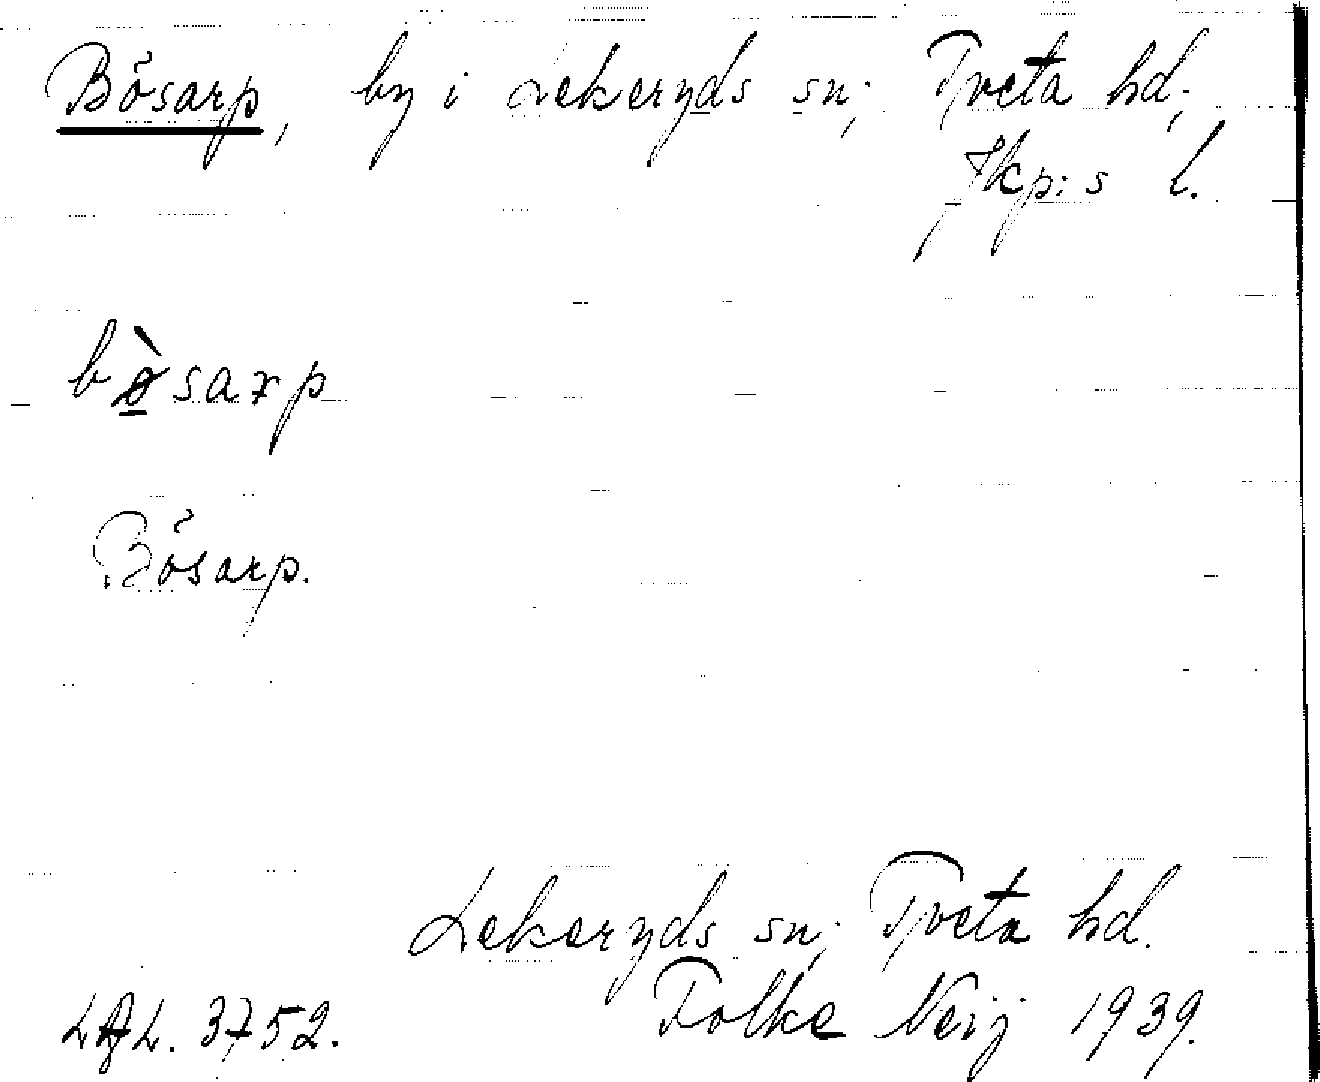 Bösarp, by i Lekeryds sn; Tveta hd;
Jkp:s l.
bø̀sarp
Bösarp.
Lekeryds sn; Tveta hd.
LAL. 3752. Folke Neij 1939.